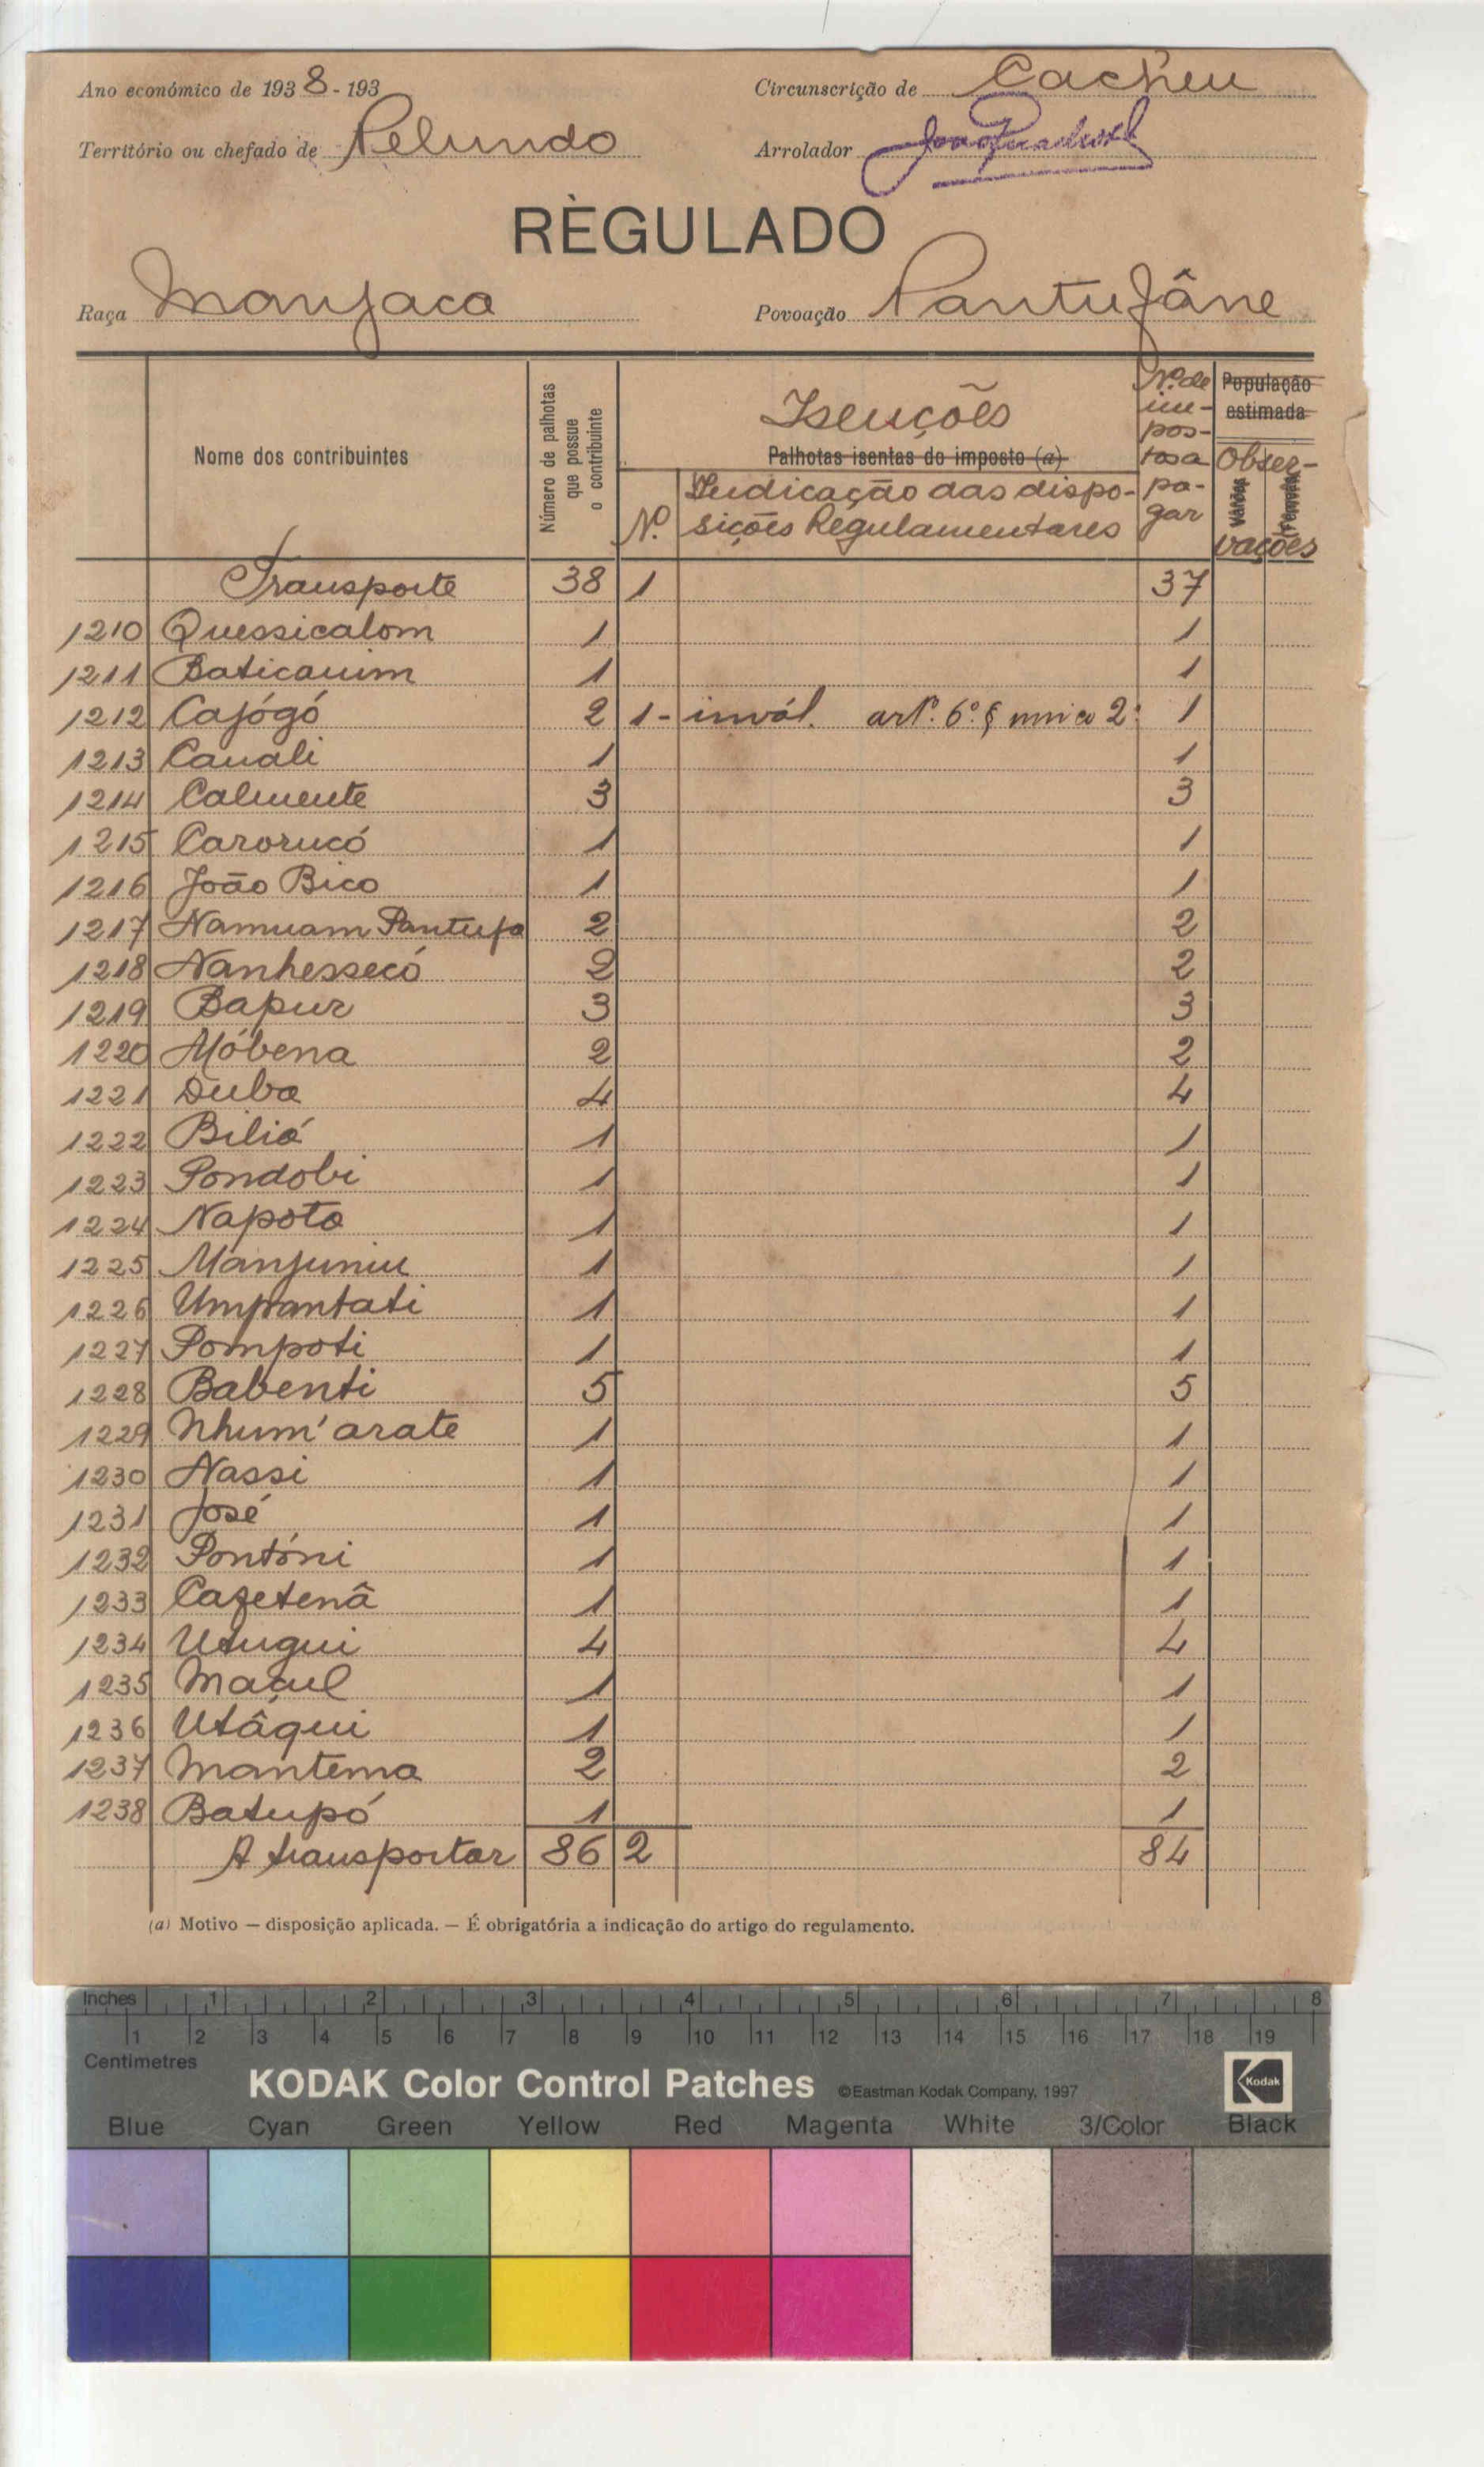 Ano económico de 1938-193
Circunscrição de Cacheu
Território ou chefado de Pelundo
Arrolador
RÈGULADO
Raça Manjaca
Povoação Pantufâne
Nome dos contribuintes
Número de palhotas que possue o contribuinte
Isenções
Palhotas isentas do imposto (a)
Nº
Indicação das dispo-
sições Regulamentares
Nº. de
im-
pos-
tos a
pa-
gar
População
estimada
Obser-
vações
Varões
Fêmeas
Transporte 38 1 37
1210 Quessicalom 1 1
1211 Baticauim 1 1
1212 Cajógó 2 1- invál. artº. 6º. § unico 2º 1
1213 Cauali 1 1
1214 Calmente 3 3
1215 Carorucó 1 1
1216 João Bico 1 1
1217 Namuam Pantufa 2 2
1218 Nanhessecó 2 2
1219 Bapur 3 3
1220 Móbena 2 2
1221 Duba 4 4
1222 Bilió 1 1
1223 Pondobi 1 1
1224 Napoto 1 1
1225 Manjuniu 1 1
1226 Umpantati 1 1
1227 Pompoti 1 1
1228 Babenti 5 5
1229 Nhum'arate 1 1
1230 Nassi 1 1
1231 José 1 1
1232 Pontóni 1 1
1233 Cazetenâ 1 1
1234 Utuqui 4 4
1235 Maçul 1 1
1236 Utâqui 1 1
1237 Mantema 2 2
1238 Batupó 1 1
A transportar 86 2 84
(a) Motivo — disposição aplicada. — É obrigatória a indicação do artigo do regulamento.
Inches 1 2 3 4 5 6 7 8
1 2 3 4 5 6 7 8 9 10 11 12 13 14 15 16 17 18 19
Centimetres
KODAK Color Control Patches ©Eastman Kodak Company, 1997 Kodak
Blue Cyan Green Yellow Red Magenta White 3/Color Black